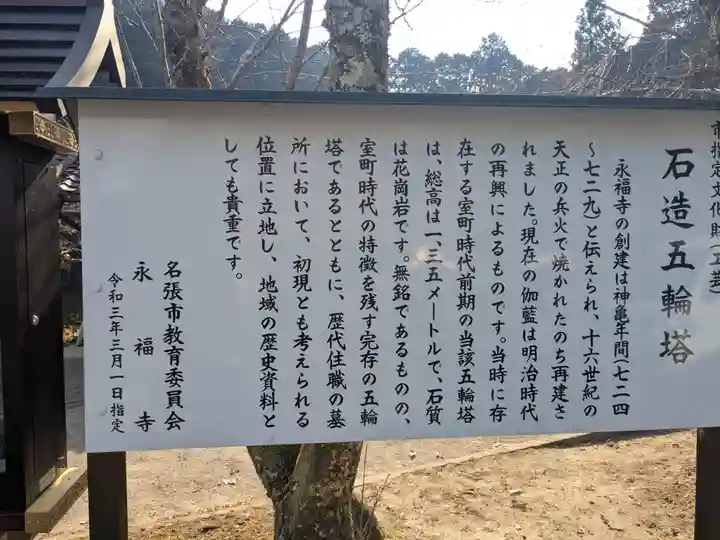 市指定文化財(工芸)
石造五輪塔
永福寺の創建は神亀年間(七二四
〜七二九)と伝えられ、十六世紀の
天正の兵火で焼かれたのち再建さ
れました。現在の伽藍は明治時代
の再興によるものです。当時に存
在する室町時代前期の当該五輪塔
は、総高は一、三五メートルで、石質
は花崗岩です。無銘であるものの、
室町時代の特徴を残す完存の五輪
塔であるとともに、歴代住職の墓
所において、初現とも考えられる
位置に立地し、地域の歴史資料と
しても貴重です。
名張市教育委員会
永福寺
令和三年三月一日指定